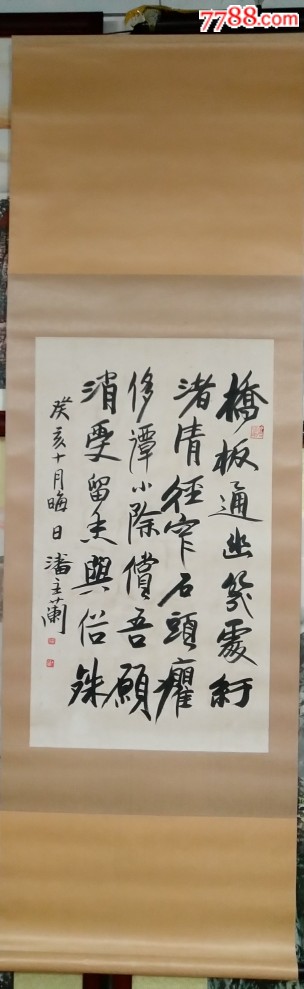 7788.com
橋板通幽幾處紆
渚清徑窄石頭癯
修潭小除償吾願
消受留香與俗殊
癸亥十月晦日潘主蘭